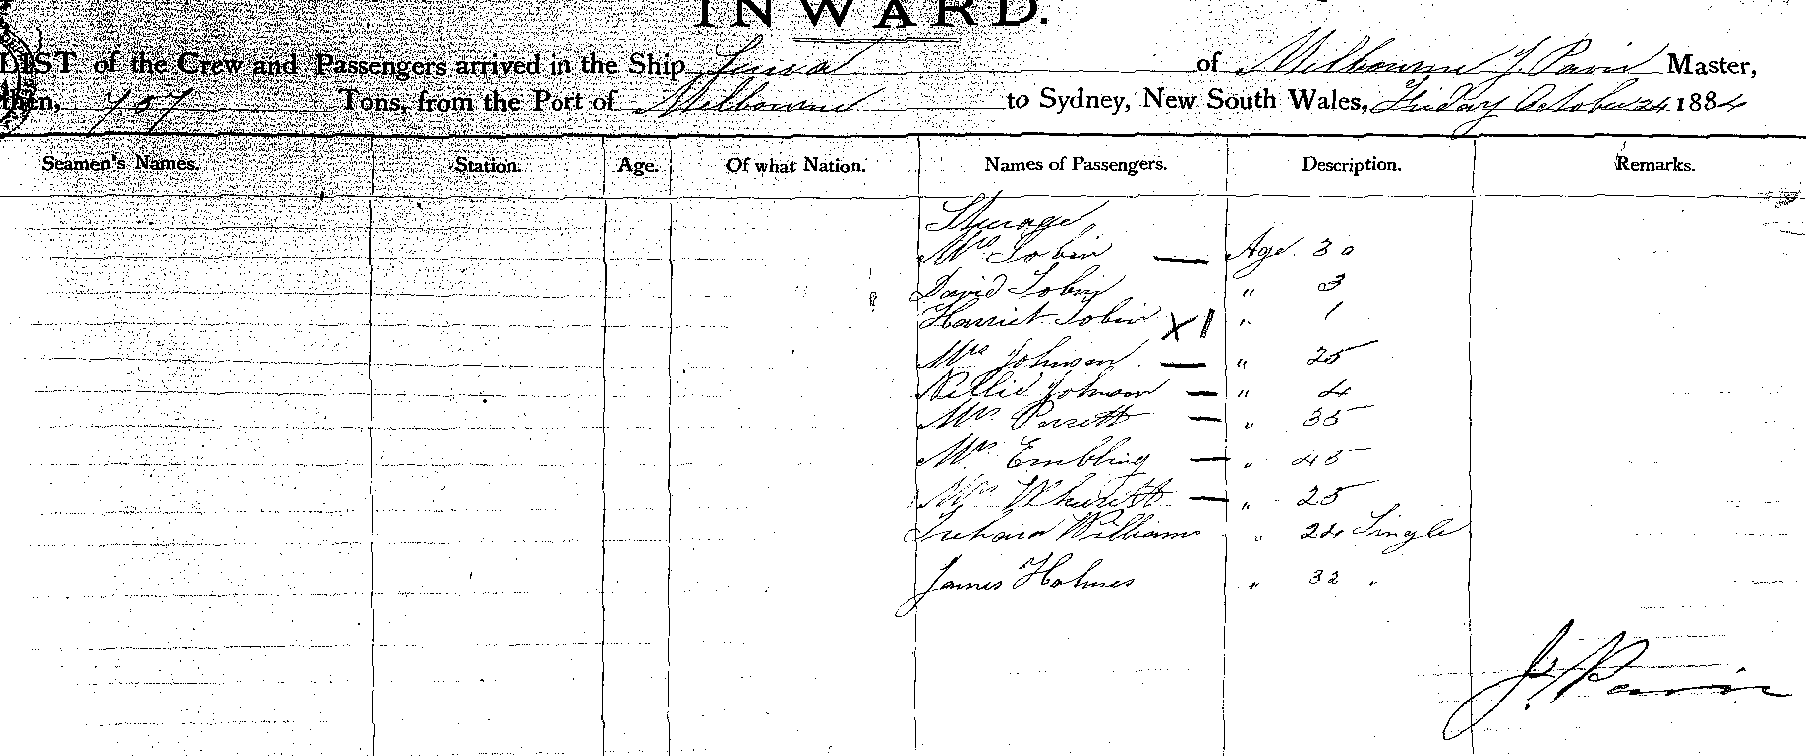 INWARD.
LIST of the Crew and Passengers arrived in the Ship of Melbourne J. Pavin Master,
707 Tons, from the Port of Melbourne to Sydney, New South Wales, Friday October 24 1884
Seamen's Names. Station. Age. Of what Nation. Names of Passengers. Description. Remarks.
Steerage
Mrs Tobin — Age 30
David Tobin " 3
Harriet Tobin X " 1
Mrs Johnson — " 25
Nellie Johnson — " 4
Mrs — " 35
Mrs Embling — " 45
Mrs — " 25
Williams " 24 Single
James Holmes " 32 "
J. Pavin